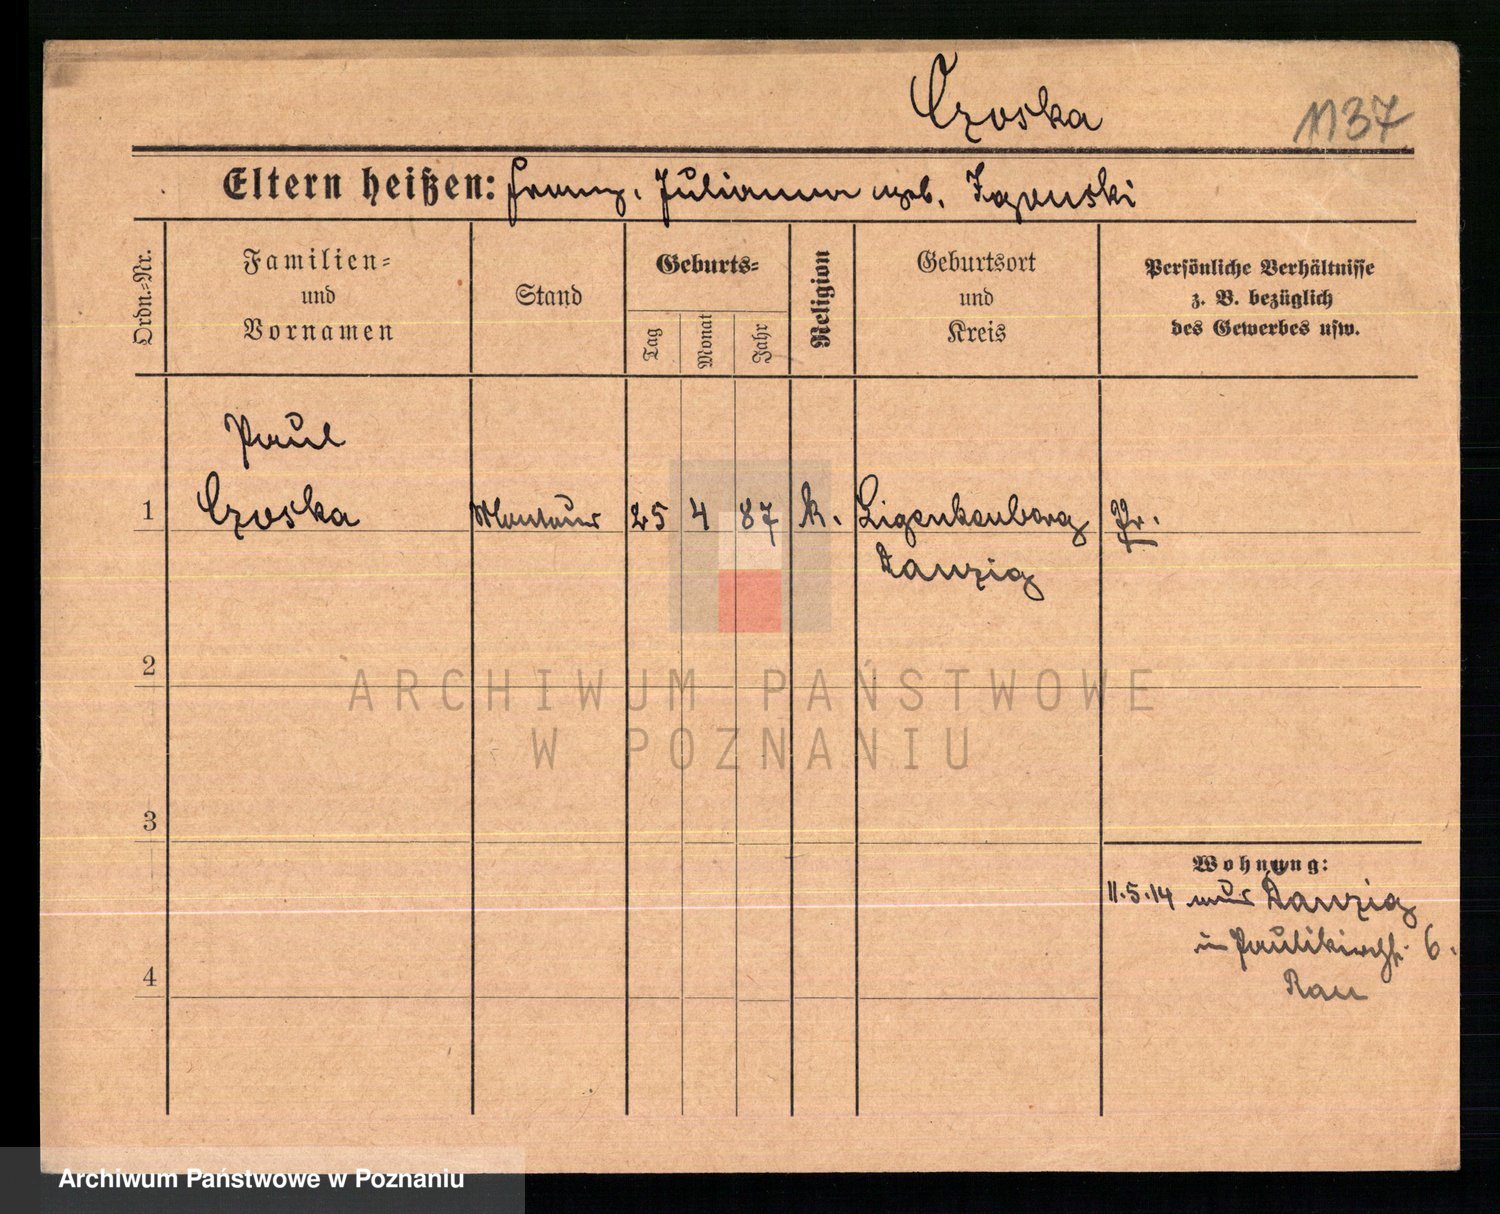 Czoska 1137
Eltern heißen: Franz, Julianna geb.
Ordn.=Nr.
Familien=
und
Vornamen
Stand
Geburts=
Tag
Monat
Jahr
Religion
Geburtsort
und
Kreis
Persönliche Verhältnisse
z. B. bezüglich
des Gewerbes usw.
Paul
1 Czoska Monteur 25 4 87 k. Pr.
Danzig
2
ARCHIWUM PAŃSTWOWE
W POZNANIU
3
Wohnung:
11.5.14 Danzig
Paulikirchstr. 6.
Rau
4
Archiwum Państwowe w Poznaniu